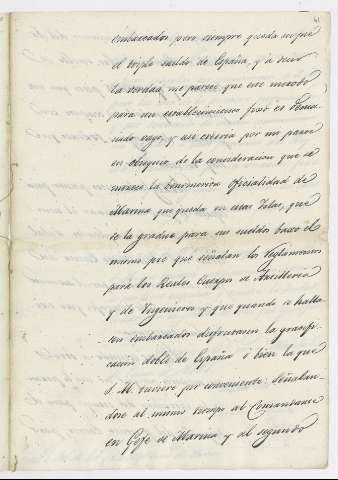 41
embarcados pero siempre queda
el triple sueldo de España, y a decir
la verdad me parece que ese metodo
para un establecimiento fixo es dema-
siado vago, y asi creeria por mi parte
en obsequio de la consideracion que se
merece la benemerita oficialidad de
Marina que queda en estas Islas, que
se la gradue para un sueldos baxo el
mismo pie que señalan los Reglamentos
para los Reales Cuerpos de Artilleria
y de Ingenieros y que quando se halla-
sen embarcados disfrutasen la gratifi-
cacion doble de España ó bien la que
S. M. tuviere por conveniente: Señalan-
dose al mismo tiempo al Comandante
en Gefe de Marina y al segundo